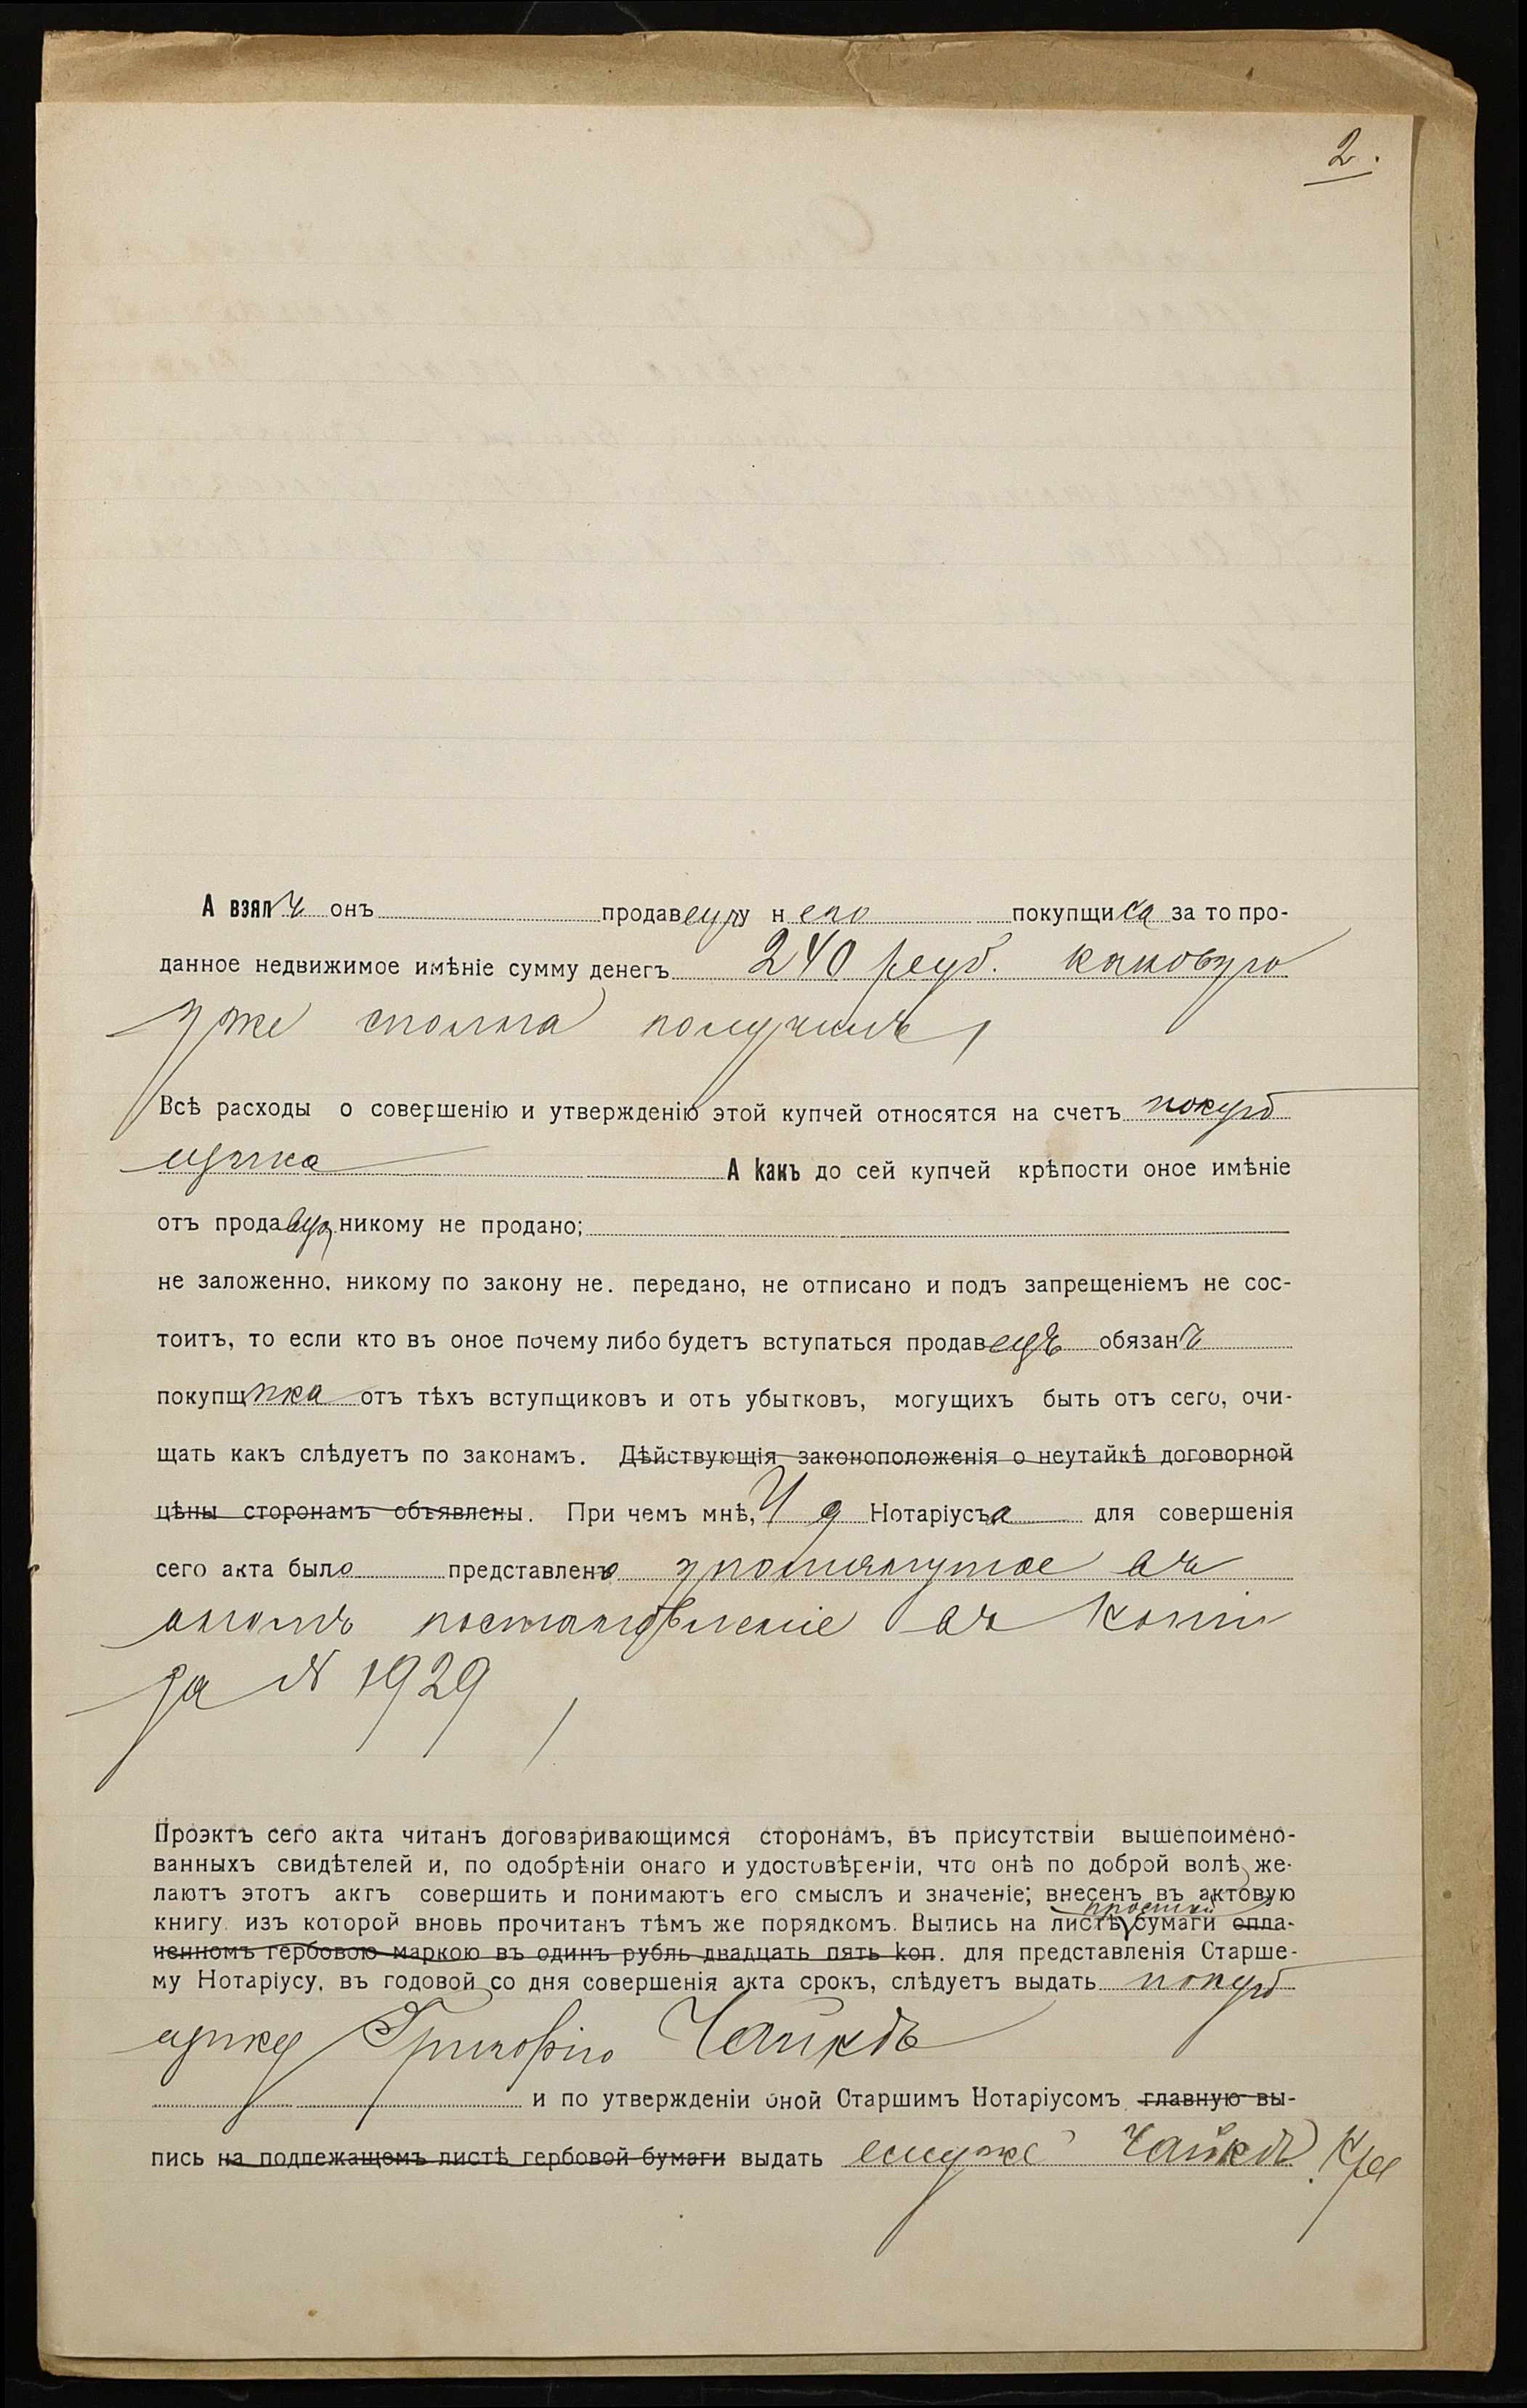 2.
А взялъ онъ продавецъ у него покупщика за то про-
данное недвижимое имѣніе сумму денегъ 240 руб. каковую
уже сполна получилъ,
Всѣ расходы о совершенію и утвержденію этой купчей относятся на счетъ покуп
щика А какъ до сей купчей крѣпости оное имѣніе
отъ продавца никому не продано;
не заложенно, никому по закону не. передано, не отписано и подъ запрещеніемъ не сос-
тоитъ, то если кто въ оное почему либо будетъ вступаться продавецъ обязанъ
покупщика отъ тѣхъ вступщиковъ и отъ убытковъ, могущихъ быть отъ сего, очи-
щать какъ слѣдуетъ по законамъ. Дѣйствующія законоположенія о неутайкѣ договорной
цѣны сторонамъ объявлены. При чемъ мнѣ, И д Нотаріуса для совершенія
сего акта было представлено упомянутое въ
ономъ постановленіе въ копіи
за N 1929
Проэктъ сего акта читанъ договаривающимся сторонамъ, въ присутствіи вышепоимено-
ванныхъ свидѣтелей и, по одобрѣніи онаго и удостовѣреніи, что онѣ по доброй волѣ же-
лаютъ этотъ актъ совершить и понимаютъ его смыслъ и значеніе; внесенъ въ актовую
книгу. изъ которой вновь прочитанъ тѣмъ же порядкомъ. Выпись на листѣ простой бумаги опла-
ченномъ гербовою маркою въ одинъ рубль двадцать пять коп. для представленія Старше-
му Нотаріусу, въ годовой со дня совершенія акта срокъ, слѣдуетъ выдать покуп
щику Григорію Чайкѣ
и по утвержденіи оной Старшимъ Нотаріусомъ главную вы-
пись на подлежащемъ листѣ гербовой бумаги выдать ему же Чайкѣ.